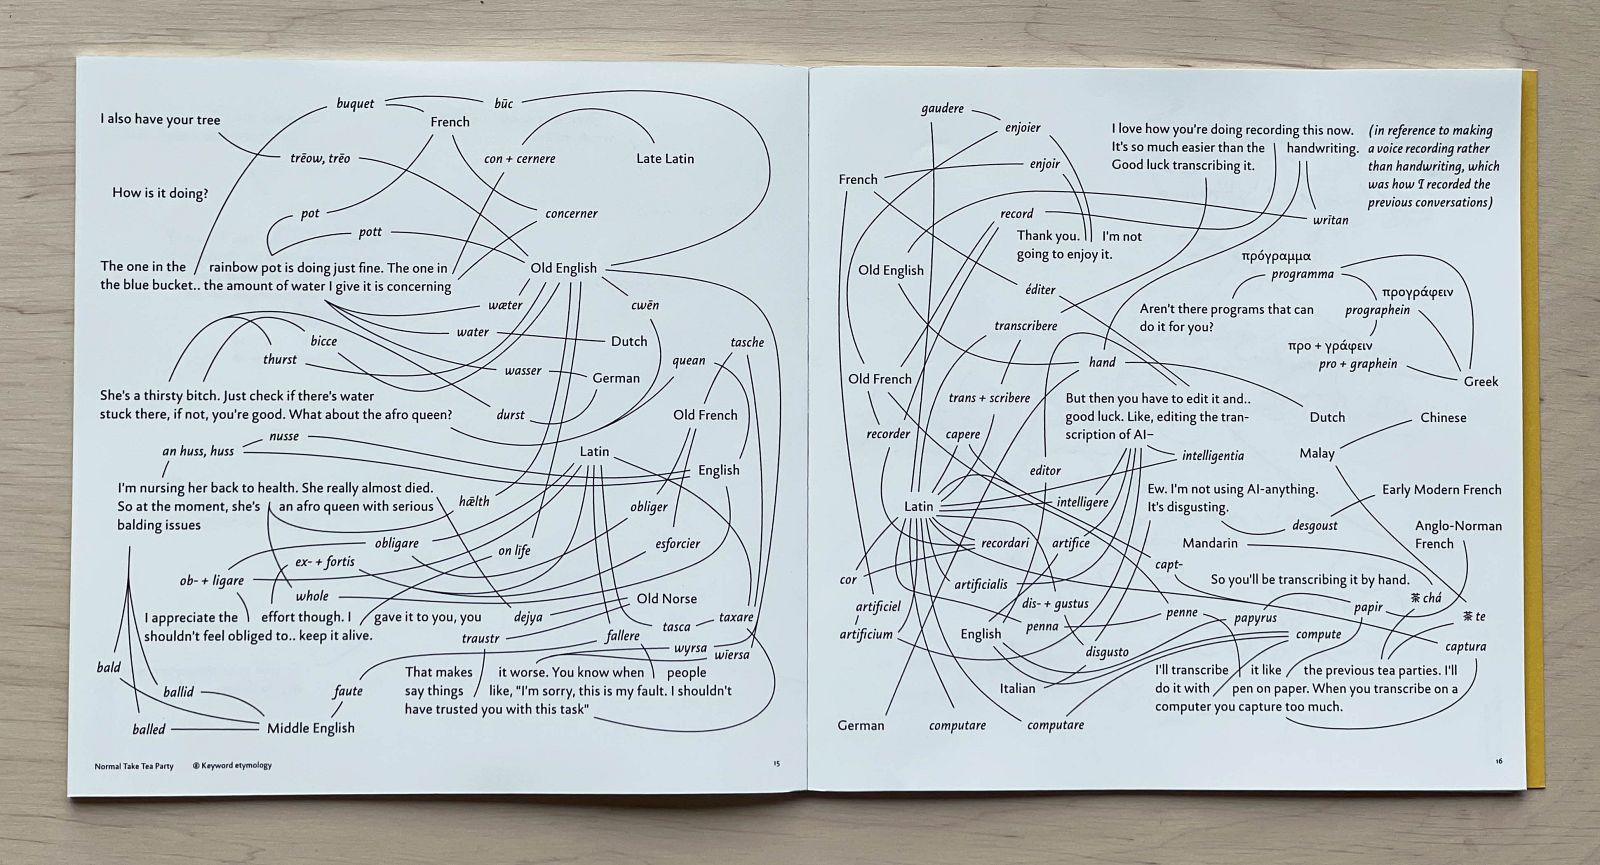 buquet
būc
I also have your tree
French
trēow, trēo
con + cernere
Late Latin
How is it doing?
pot
concerner
pott
The one in the rainbow pot is doing just fine. The one in
the blue bucket.. the amount of water I give it is concerning
Old English
wæter
cwēn
water
bicce
Dutch
tasche
thurst
quean
wasser
German
She's a thirsty bitch. Just check if there's water
stuck there, if not, you're good. What about the afro queen?
durst
Old French
nusse
an huss, huss
Latin
English
I'm nursing her back to health. She really almost died.
So at the moment, she's an afro queen with serious
balding issues
hǣlth
obliger
obligare
on life
esforcier
ex- + fortis
ob- + ligare
whole
Old Norse
I appreciate the effort though. I gave it to you, you
shouldn't feel obliged to.. keep it alive.
dejya
tasca
taxare
traustr
fallere
wyrsa
wiersa
bald
That makes it worse. You know when people
say things like, "I'm sorry, this is my fault. I shouldn't
have trusted you with this task"
ballid
faute
balled
Middle English
Normal Take Tea Party
Keyword etymology
15
gaudere
enjoier
I love how you're doing recording this now.
It's so much easier than the handwriting.
Good luck transcribing it.
(in reference to making
a voice recording rather
than handwriting, which
was how I recorded the
previous conversations)
enjoir
French
record
wrītan
Thank you. I'm not
going to enjoy it.
Old English
πρόγραμμα
programma
éditer
προγράφειν
prographein
Aren't there programs that can
do it for you?
transcribere
προ + γράφειν
pro + graphein
hand
Old French
Greek
trans + scribere
But then you have to edit it and..
good luck. Like, editing the tran-
scription of AI–
Dutch
Chinese
recorder
capere
Malay
intelligentia
editor
Latin
intelligere
Ew. I'm not using AI-anything.
It's disgusting.
Early Modern French
desgoust
Anglo-Norman
French
recordari
artifice
Mandarin
cor
artificialis
capt-
So you'll be transcribing it by hand.
茶 chá
artificiel
dis- + gustus
penne
papyrus
papir
茶 te
artificium
English
penna
compute
captura
disgusto
I'll transcribe it like the previous tea parties. I'll
do it with pen on paper. When you transcribe on a
computer you capture too much.
Italian
German
computare
computare
16